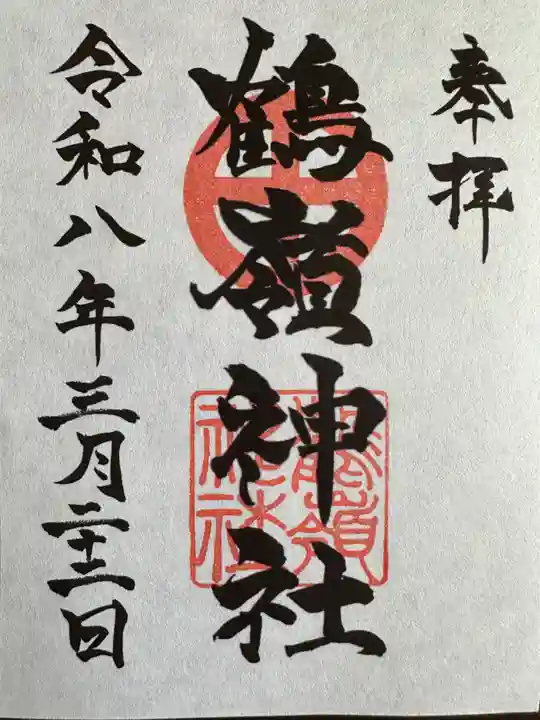 奉拝
鶴嶺神社
鶴嶺神社
令和八年三月二十二日